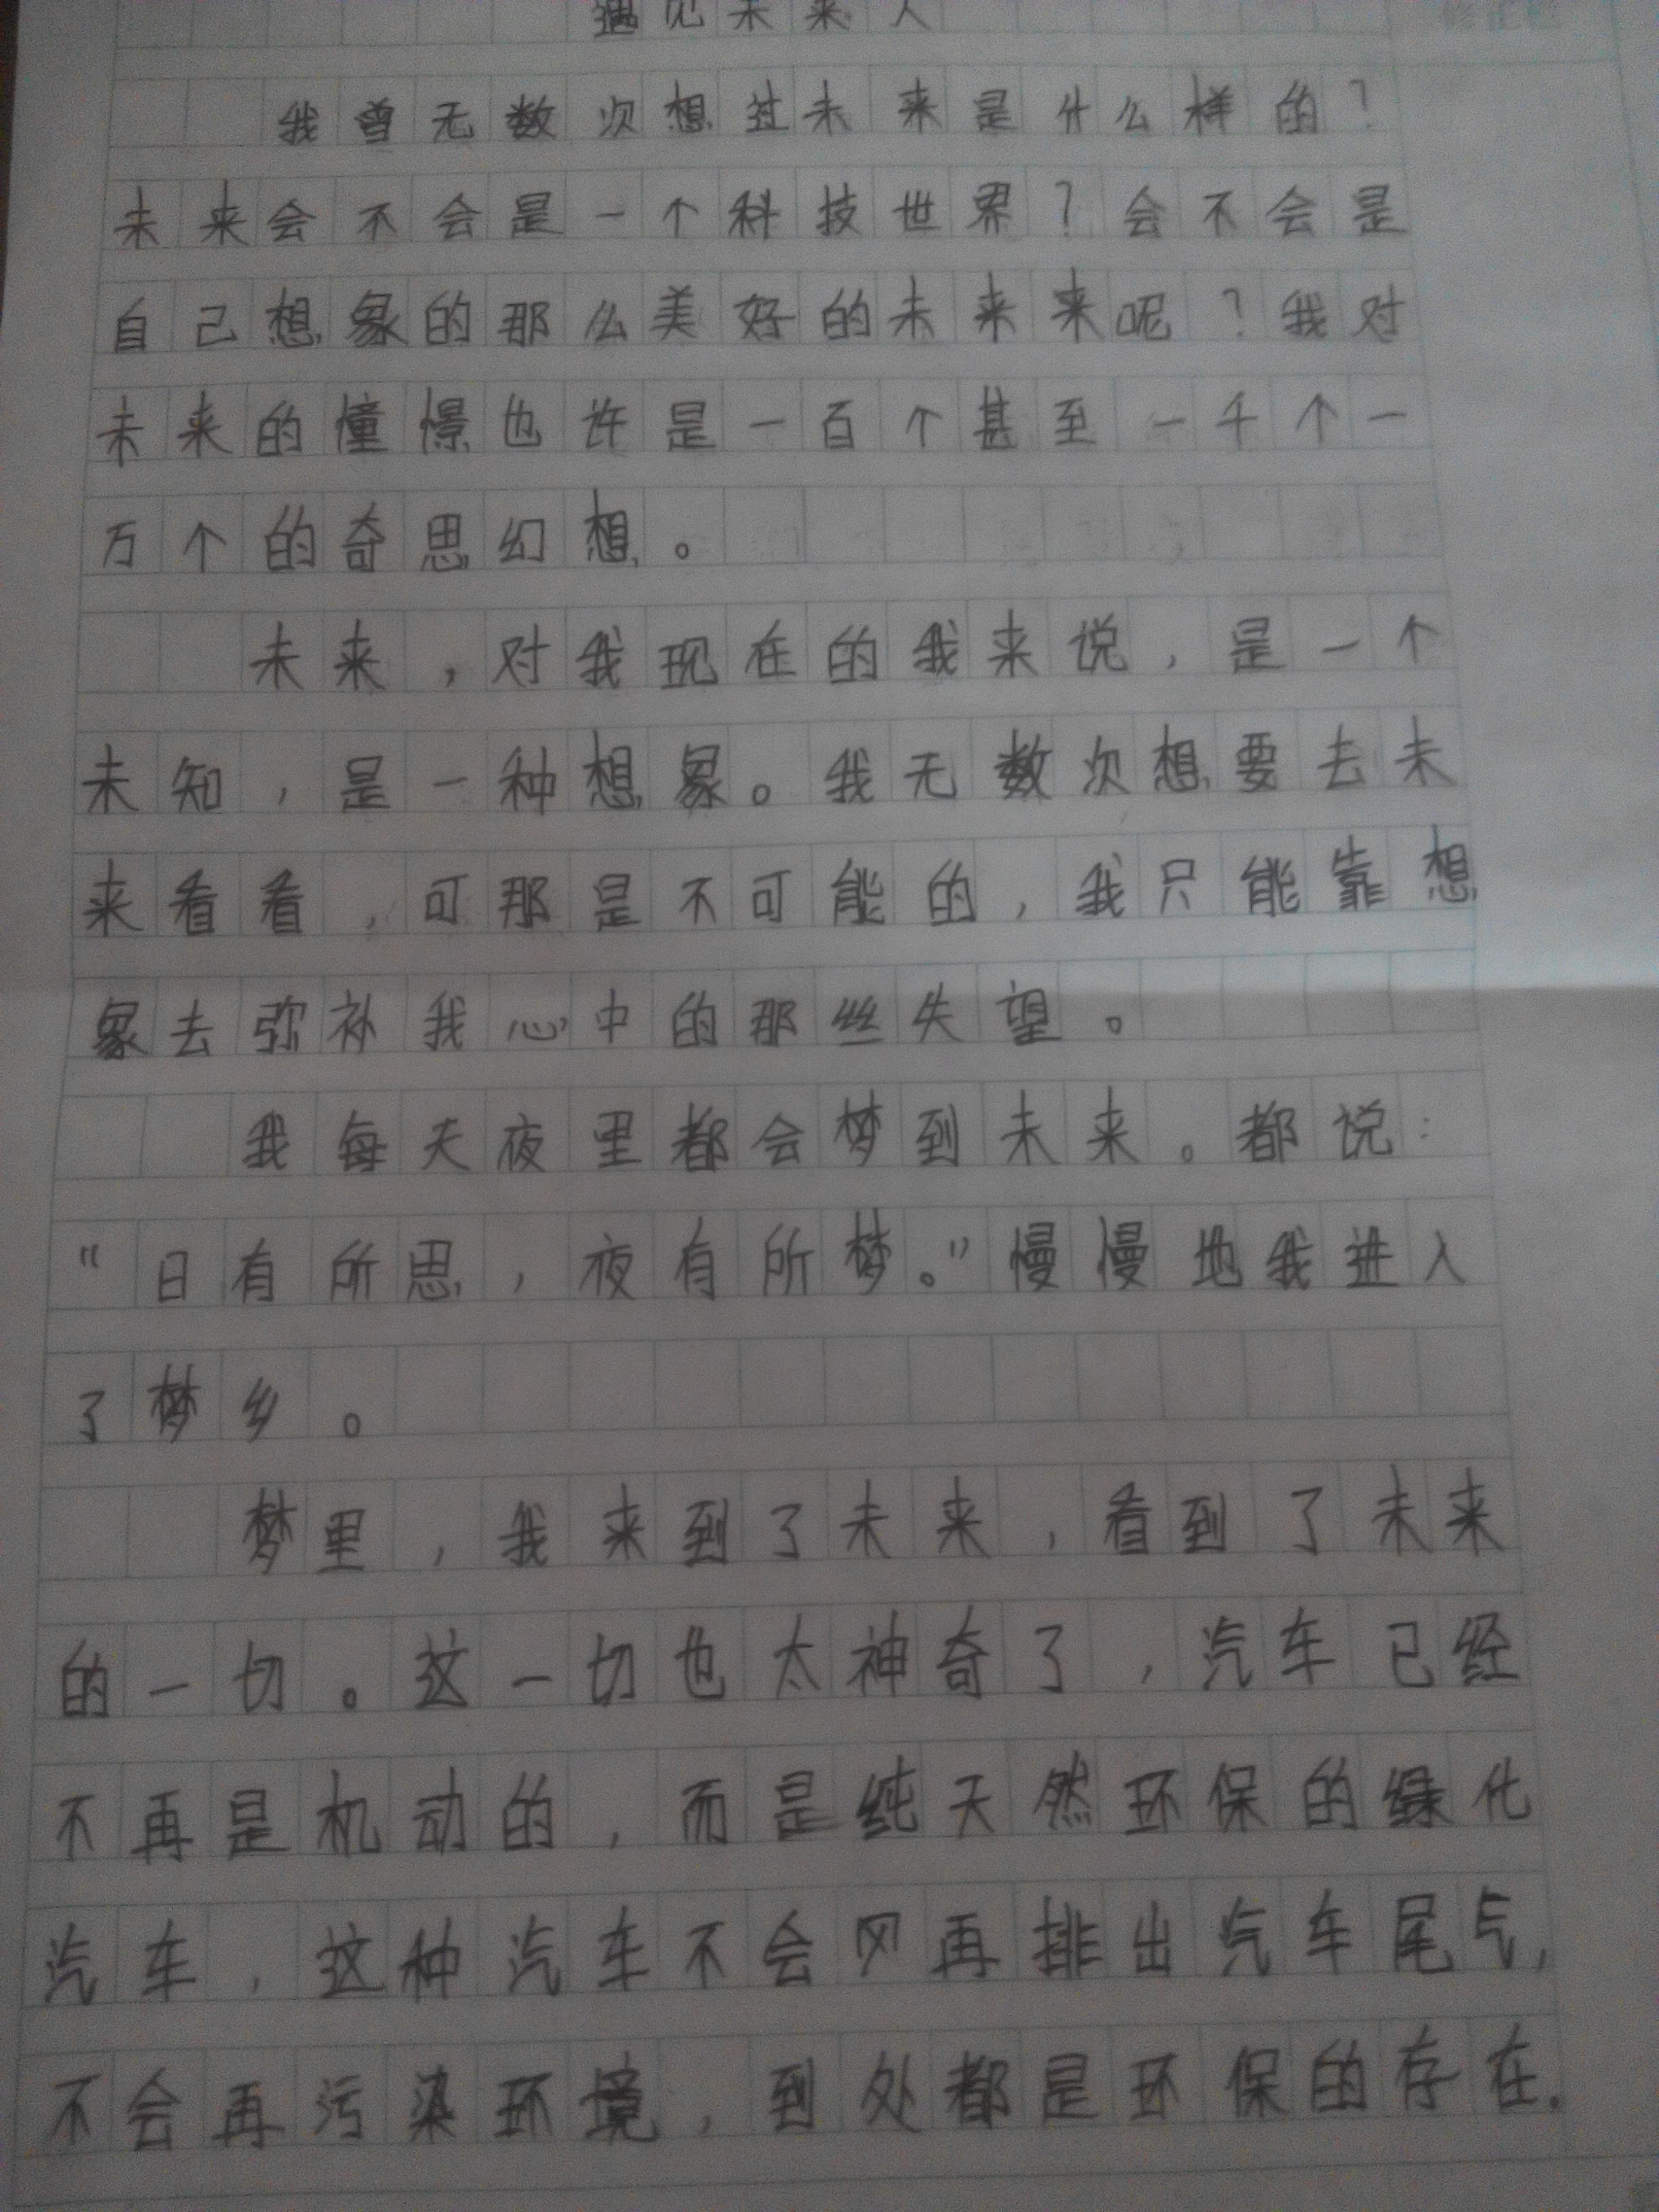 遇见未来人
我曾无数次想过未来是什么样的？
未来会不会是一个科技世界？会不会是
自己想象的那么美好的未来来呢？我对
未来的憧憬也许是一百个甚至一千个一
万个的奇思幻想。
未来，对我现在的我来说，是一个
未知，是一种想象。我无数次想要去未
来看看，可那是不可能的，我只能靠想
象去弥补我心中的那丝失望。
我每天夜里都会梦到未来。都说：
“日有所思，夜有所梦。”慢慢地我进入
了梦乡。
梦里，我来到了未来，看到了未来
的一切。这一切也太神奇了，汽车已经
不再是机动的，而是纯天然环保的绿化
汽车，这种汽车不会再排出汽车尾气，
不会再污染环境，到处都是环保的存在.